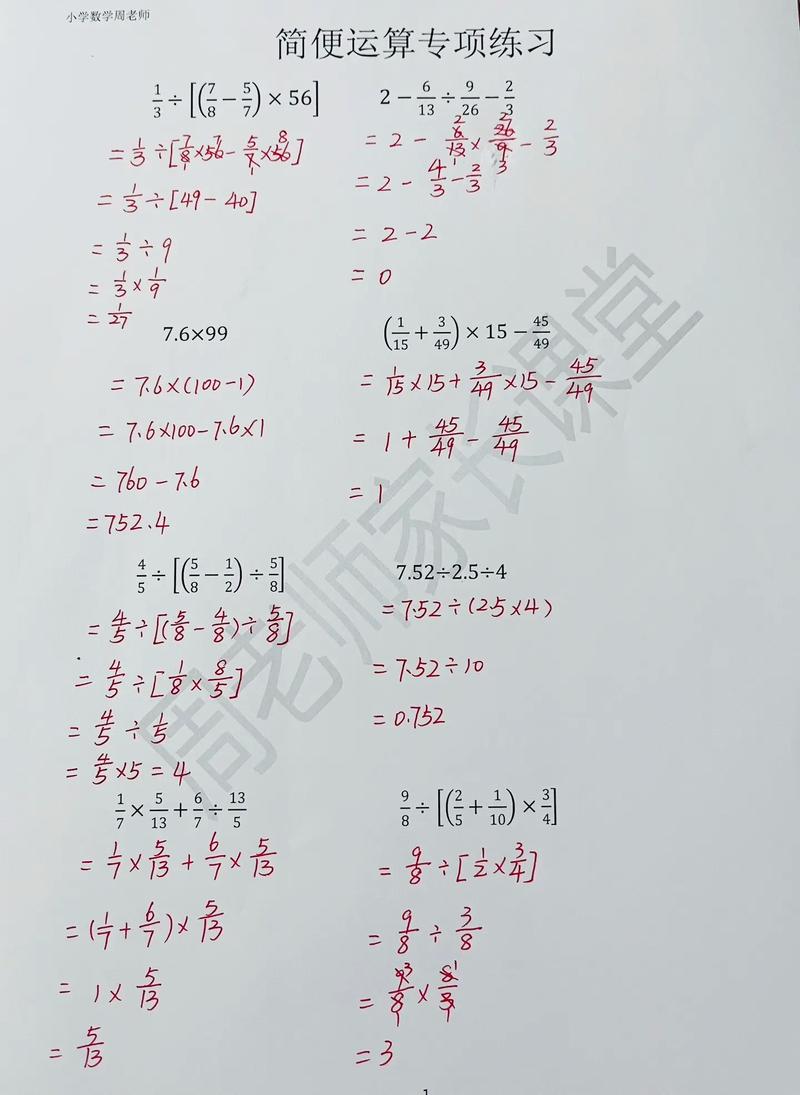 小学数学周老师
简便运算专项练习
1/3 ÷ [(7/8 − 5/7) × 56]
= 1/3 ÷ [7/8 × 56 − 5/7 × 56]
= 1/3 ÷ [49 − 40]
= 1/3 ÷ 9
= 1/3 × 1/9
= 1/27
2 − 6/13 ÷ 9/26 − 2/3
= 2 − 6/13 × 26/9 − 2/3
= 2 − 4/3 − 2/3
= 2 − 2
= 0
7.6×99
= 7.6×(100−1)
= 7.6×100−7.6×1
= 760 − 7.6
= 752.4
(1/15 + 3/49) × 15 − 45/49
= 1/15 × 15 + 3/49 × 15 − 45/49
= 1 + 45/49 − 45/49
= 1
4/5 ÷ [(5/8 − 1/2) ÷ 5/8]
= 4/5 ÷ [(5/8 − 4/8) ÷ 5/8]
= 4/5 ÷ [1/8 × 8/5]
= 4/5 ÷ 1/5
= 4/5 × 5 = 4
7.52÷2.5÷4
= 7.52 ÷ (2.5 × 4)
= 7.52 ÷ 10
= 0.752
1/7 × 5/13 + 6/7 ÷ 13/5
= 1/7 × 5/13 + 6/7 × 5/13
= (1/7 + 6/7) × 5/13
= 1 × 5/13
= 5/13
9/8 ÷ [(2/5 + 1/10) × 3/4]
= 9/8 ÷ [1/2 × 3/4]
= 9/8 ÷ 3/8
= 9/8 × 8/3
= 3
周老师家长课堂
1